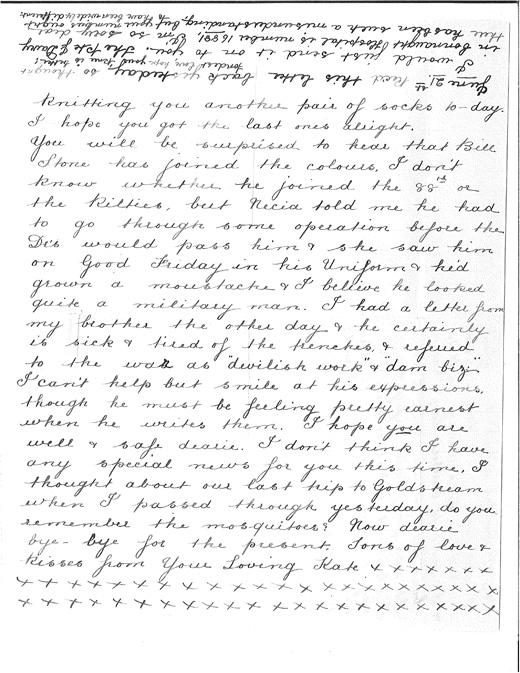 June 21st Recd this letter back yesterday, so thought
I would just send it on to you. The Pte Davy
in Connaught Hospital is number 16891.
I'm so sorry dear
there has been such a misunderstanding, but your number ought
to have been
knitting you another pair of socks to-day.
I hope you got the last ones alright.
You will be surprised to hear that Bill
Stone has joined the colours, I don't
know whether he joined the 88th or
the Kilties, but Necia told me he had
to go through some operation before the
Drs would pass him & she saw him
on Good Friday in his Uniform & he'd
grown a moustache & I believe he looked
quite a military man. I had a letter from
my brother the other day & he certainly
is sick & tired of the trenches, & refered
to the war as "devilish work" & "dam biz."
I can't help but smile at his expressions,
though he must be feeling pretty earnest
when he writes them. I hope you are
well & safe dearie. I don't think I have
any special news for you this time, I
thought about our last trip to Goldstream
when I passed through yesterday, do you
remember the mosquitoes? Now dearie
bye-bye for the present. Tons of love &
kisses from Your Loving Kate x x x x x x x
x x x x x x x x x x x x x x x x x x x
x x x x x x x x x x x x x x x x x x x